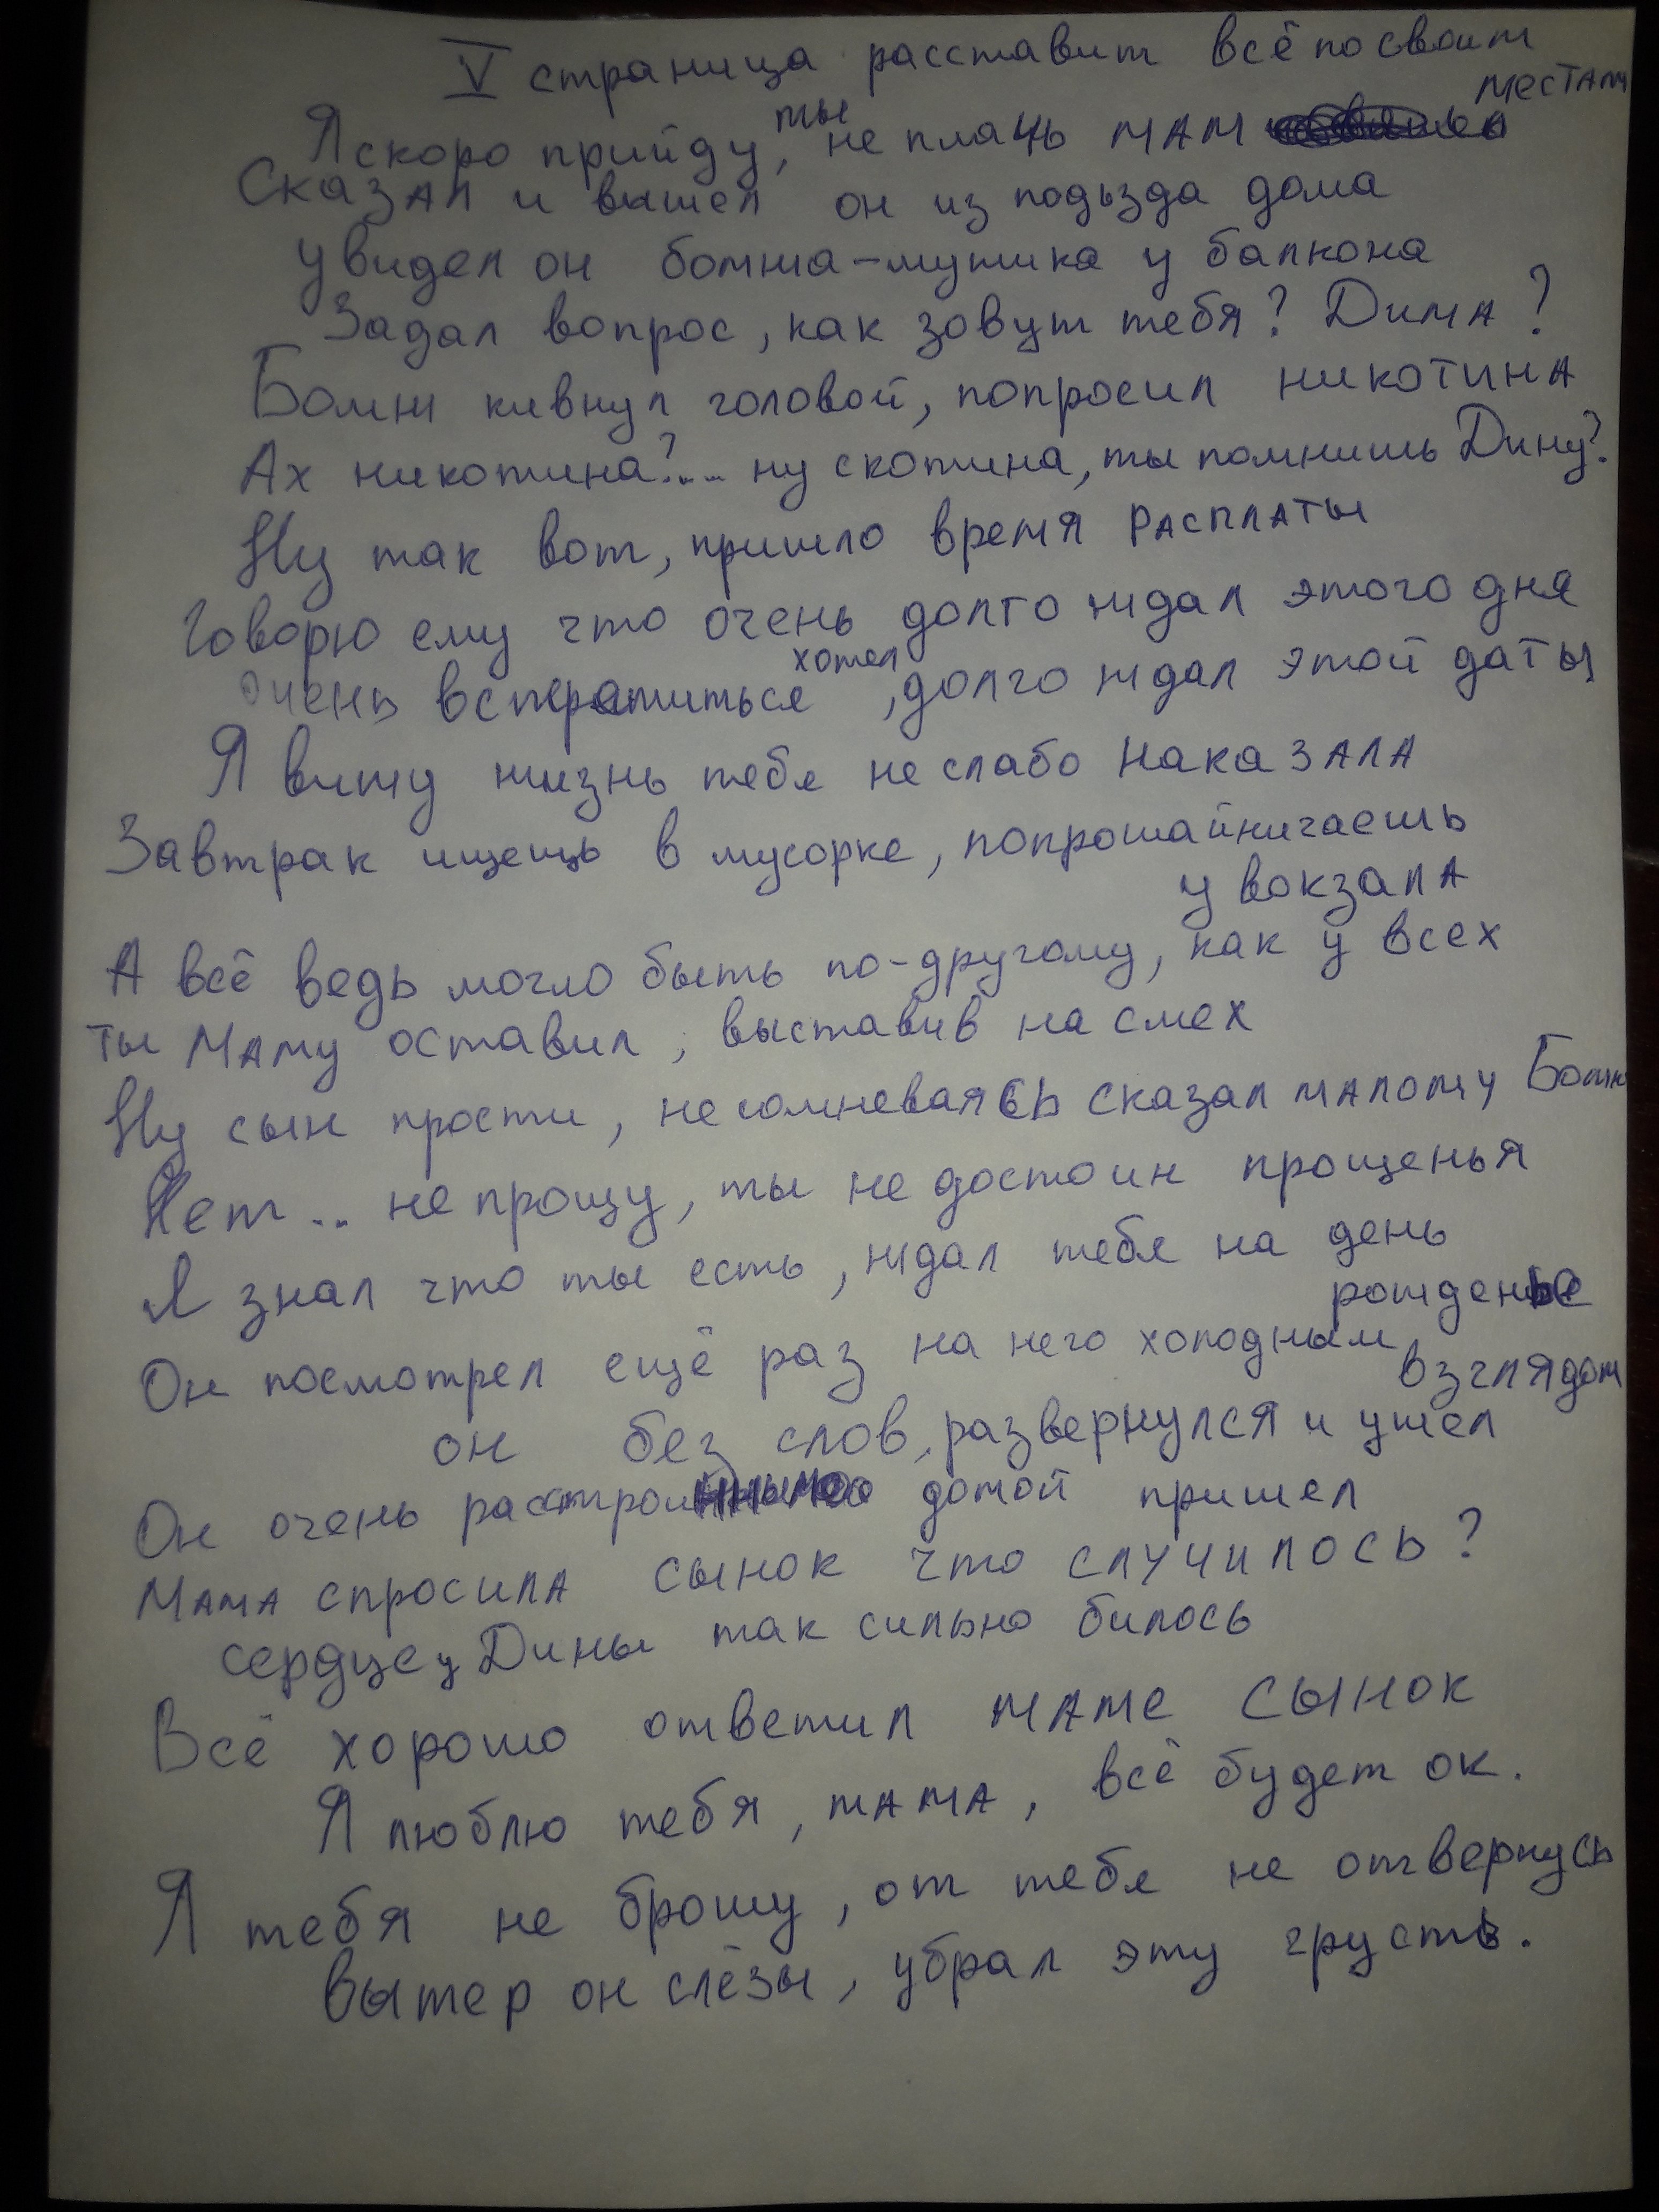 V страница расставит всё по своим
местам
Я скоро прийду, ты не плачь мам
Сказал и вышел он из подьзда дома
увидел он бомжа-мужика у балкона
Задал вопрос, как зовут тебя? Дима?
Бомж кивнул головой, попросил никотина
Ах никотина?... ну скотина, ты помнишь Дину?
Ну так вот, пришло время расплаты
Говорю ему что очень долго ждал этого дня
Очень встретиться хотел, долго ждал этой даты
Я вижу жизнь тебя не слабо наказала
Завтрак ищещь в мусорке, попрошайничаешь
у вокзала
А всё ведь могло быть по-другому, как у всех
ты маму оставил, выставив на смех
Ну сын прости, не сомневаясь сказал малому Бомж
Нет.. не прощу, ты не достоин прощенья
Я знал что ты есть, ждал тебя на день
рожденье
Он посмотрел ещё раз на него холодным
взглядом
он без слов, развернулся и ушел
Он очень домой пришел
Мама спросила сынок что случилось?
сердце у Дины так сильно билось
Всё хорошо ответил маме сынок
Я люблю тебя, мама, всё будет ок.
Я тебя не брошу, от тебя не отвернусь
вытер он слёзы, убрал эту грусть.